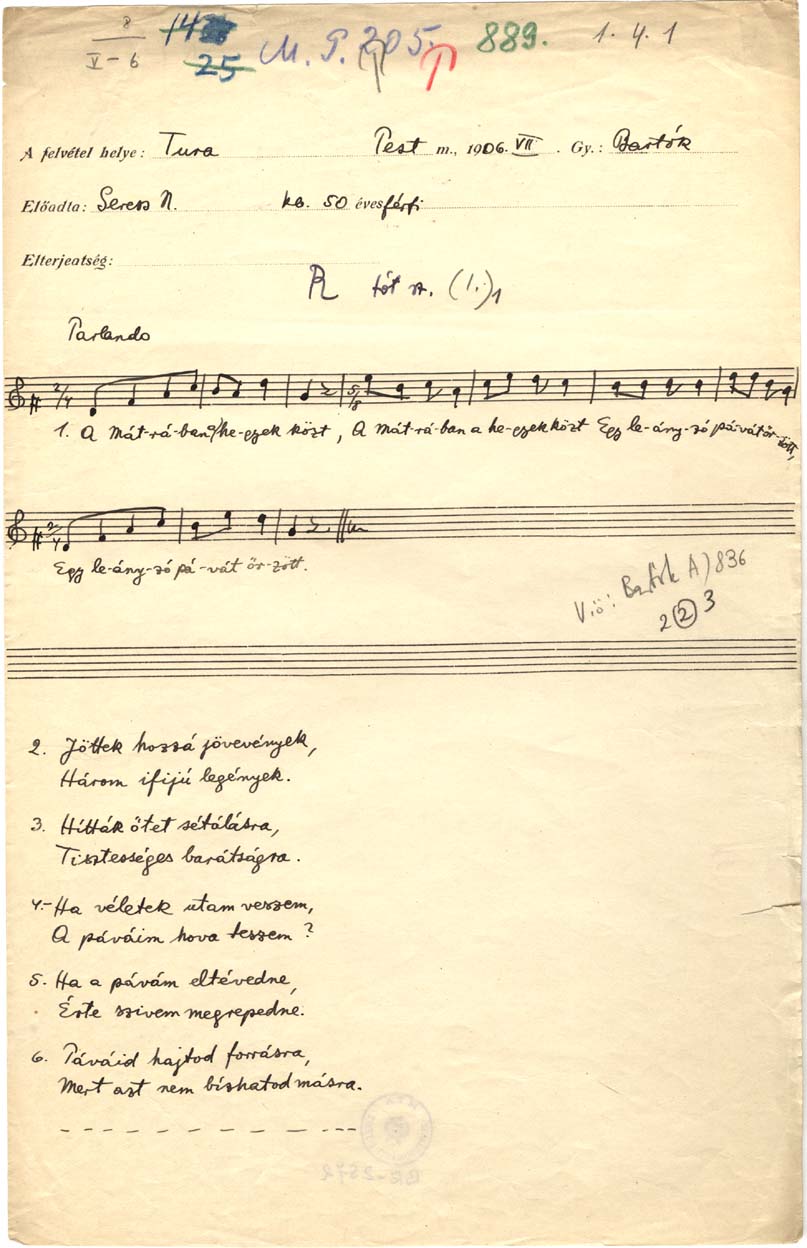 8
V-6
25
M. P. 205. 889. 1. 4. 1
A felvétel helye: Tura Pest m., 1906. VII. Gy.: Bartók
Előadta: Seress N. kb. 50 éves férfi
Elterjeatség:
tót r. (I.)1
Parlando
2/4 5/8
1. A Mát-rá-ban a he-gyek közt, A Mát-rá-ban a he-gyek közt Egy le-ány-zó pá-vát őr-zött,
2/4
Egy le-ány-zó pá-vát őr-zött.
V.ö.: Bartók A) 836
2 2 3
2. Jöttek hozzá jövevények,
Három ifijú legények.
3. Hítták őtet sétálásra,
Tisztességes barátságra.
4.- Ha véletek utam veszem,
A páváim hova teszem?
5. Ha a pávám eltévedne,
Érte szivem megrepedne.
6. Páváid hajtod forrásra,
Mert azt nem bízhatod másra.